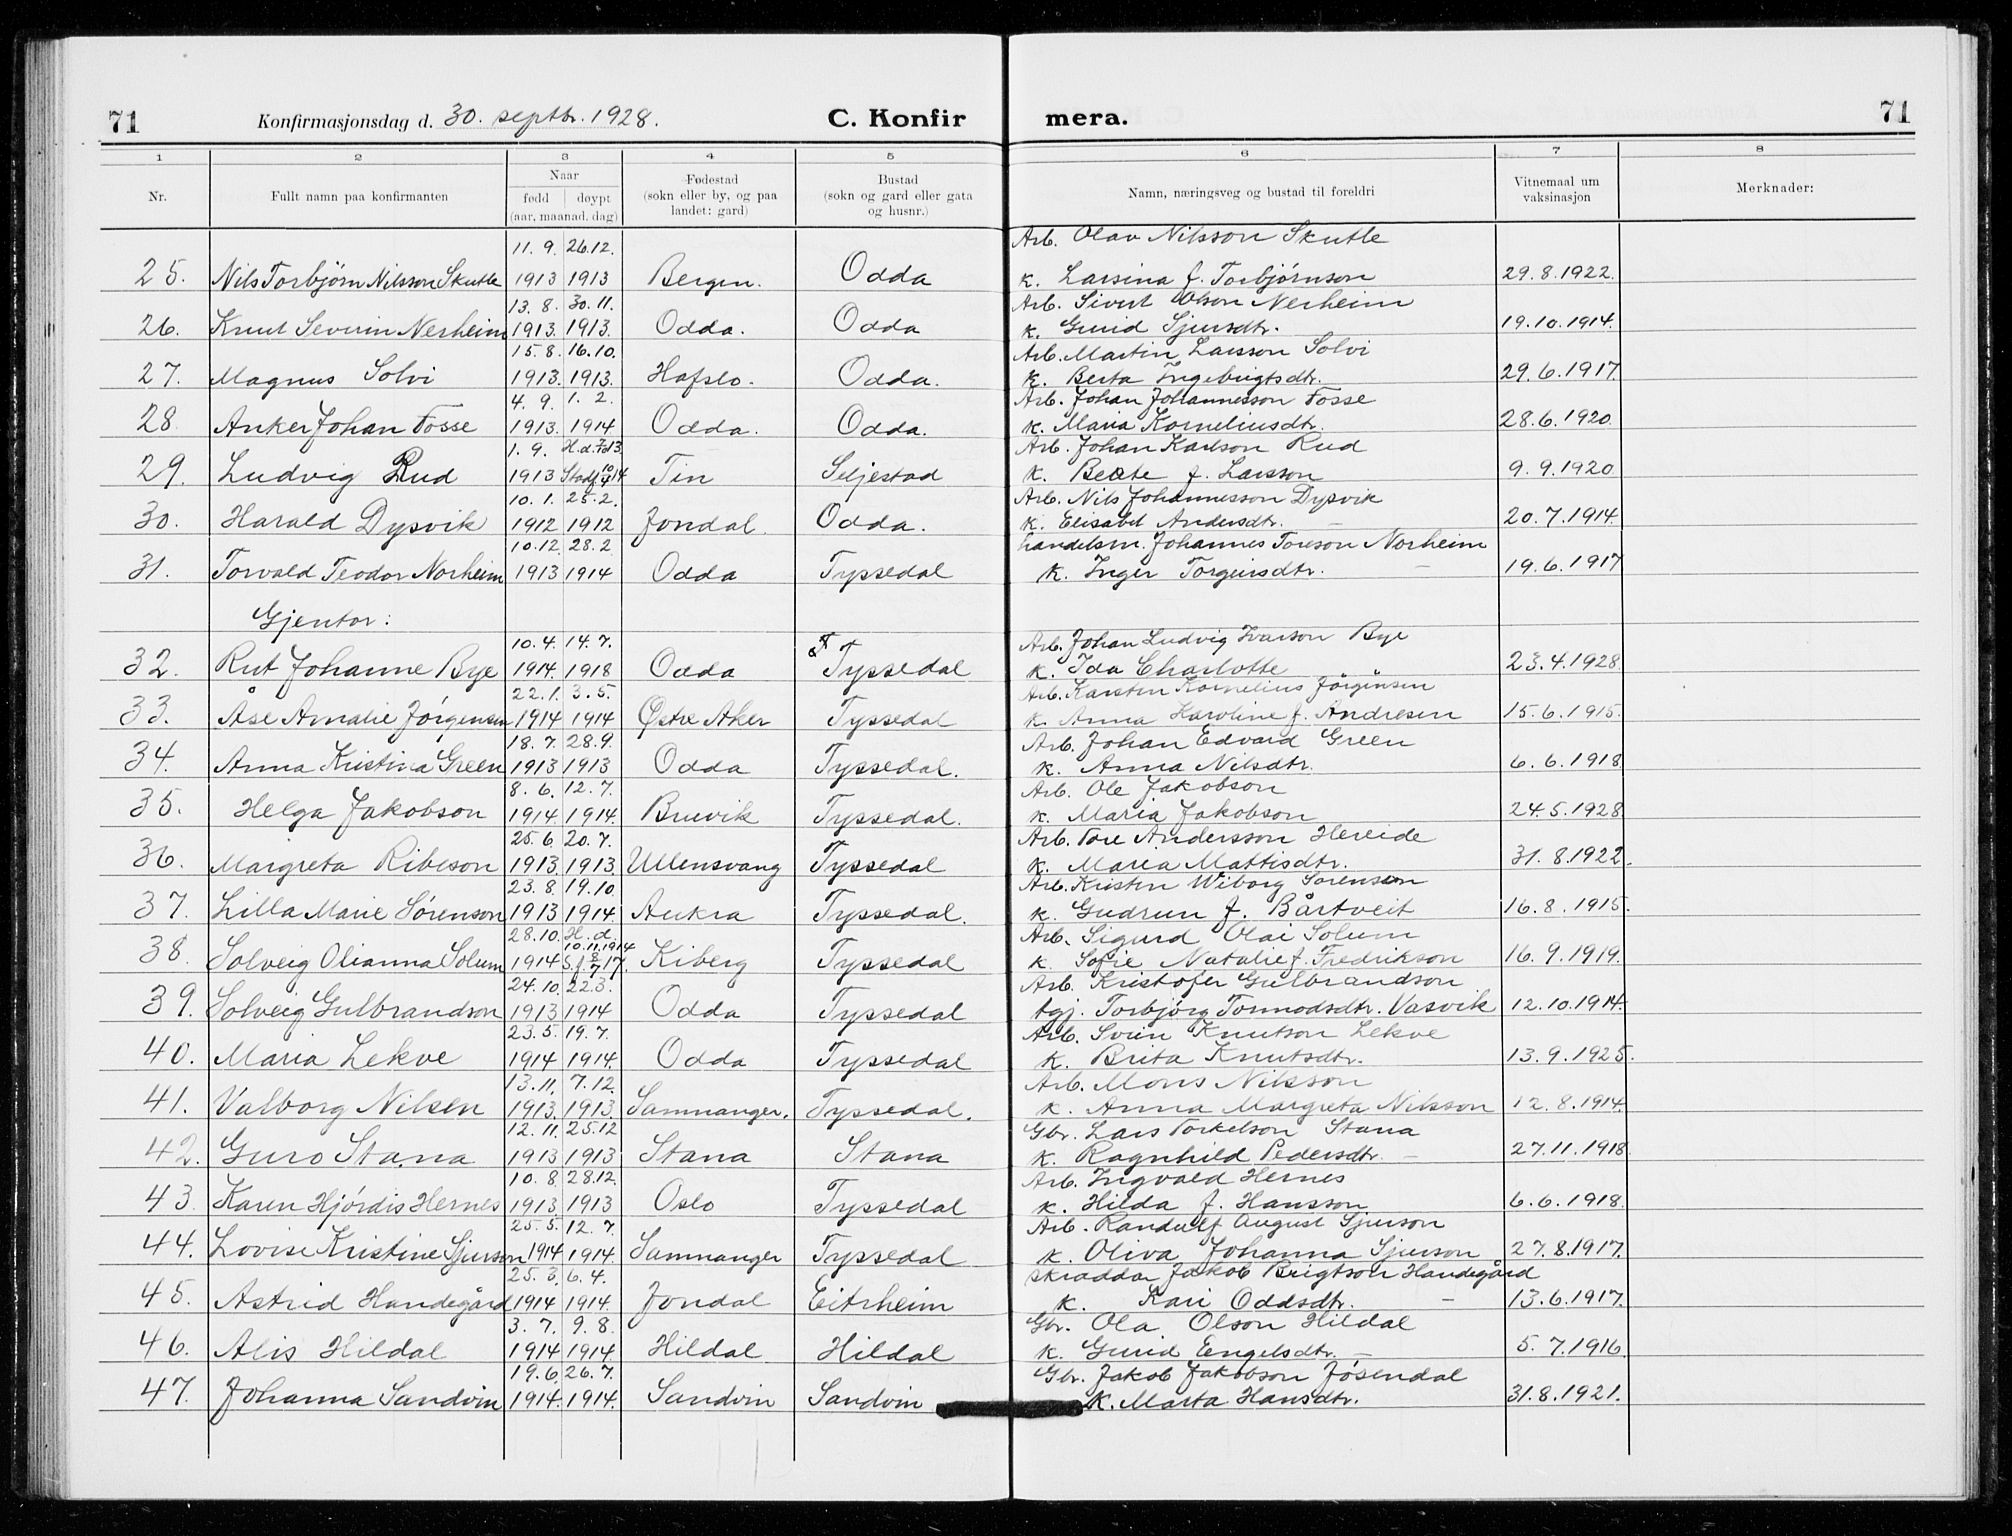 71 Konfirmasjonsdag d. 30. septbr. 1928. C. Konfir mera. 71
1 2 3 4 5 6 7 8
Nr. Fullt namn paa konfirmanten Naar fødd døypt (aar, maanad, dag) Fødestad (sokn eller by, og paa landet: gard) Bustad (sokn og gard eller gata og husnr.) Namn, næringsveg og bustad til foreldri Vitnemaal um vaksinasjon Merknader:
11. 9. 26.12. Arb. Olav Nilsson Skutle
25. Nils Torbjørn Nilsson Skutle 1913 1913 Bergen. Odda k. Larsina f. Torbjørnson 29.8.1922.
13. 8. 30. 11. Arb. Sivert Olson Nerheim
26. Knut Severin Nerheim 1913. 1913. Odda. Odda k. Guríd Sjursdtr. 19.10.1914.
15. 8. 16.10. Arb. Martin Larsson Solvi
27. Magnus Solvi 1913. 1913. Hafslo. Odda. k. Berta Ingebrigtsdtr. 29.6.1917.
4. 9. 1. 2. Arb. Johan Johannesson Fosse
28. Anker Johan Fosse 1913. 1914 Odda. Odda. k. Maria Korneliusdtr. 28.6.1920.
1. 9. H.d. Arb. Johan Karlson Rud
29. Ludvig Rud 1913 Stadf. Tin Seljestad k. Beate f. Larsson 9.9.1920
10. 1. 25. 2. Arb. Nils Johannesson Dysvik
30. Harald Dysvik 1912 1912 Jondal. Odda. k. Elisabet Andersdtr. – 20.7.1914.
10.12. 28.2. handelsm. Johannes Toreson Norheim
31. Torvald Teodor Norheim 1913 1914 Odda Tyssedal k. Inger Torgeirsdtr. – 19.6.1917
Gjentor:
10. 4. 14. 7. Arb. Johan Ludvig Ivarson Bye
32. Rut Johanne Bye 1914. 1918 Odda Tyssedal k. Ida Charlotte 23.4.1928
22. 1. 3. 5. Arb. Karsten Kornelius Jörgensen
33. Åse Amalie Jørgensen 1914 1914 Østre Aker Tyssedal k. Anna Karoline f. Andresen 15.6.1915.
18. 7. 28.9. Arb. Johan Edvard Green
34. Anna Kristina Green 1913 1913 Odda Tyssedal. k. Anna Nilsdtr. 6.6.1918
8. 6. 12. 7. Arb. Ole Jakobson
35. Helga Jakobson 1914. 1914. Bruvik Tyssedal. k. Maria Jakobson 24.5.1928.
25. 6. 20. 7. Arb. Tore Andersson Hereide
36. Margreta Ribeson 1913. 1913. Ullensvang Tyssedal k. Marea Mattisdtr. 31.8.1922.
23. 8. 19.10. Arb. Kristen Wiborg Sorenson
37. Lilla Marie Sørenson 1913 1914. Aukra Tyssedal. k. Gudrun f. Bårtveit 16.8.1915.
28.10. H.d. 10.11.1914 Arb. Sigurd Olai Solum
38. Solveig Olianna Solum 1914 S.f. 8/7 17. Kiberg Tyssedal k. Sofie Natalie f. Fredrikson 16.9.1919.
24.10. 22.3. Arb. Kristofer Gulbrandson
39. Solveig Gulbrandson 1913 1914 Odda Tyssedal tgj. Torbjørg Tormodsdtr. Vasvik 12.10.1914.
23. 5. 19. 7. Arb. Svein Knutson Lekve
40. Maria Lekve 1914 1914. Odda Tyssedal k. Brita Knutsdtr. 13.9.1925.
13.11. 7.12. Arb. Mons Nilsson
41. Valborg Nilsen 1913. 1913. Samnanger. Tyssedal. k. Anna Margreta Nilsson 12.8.1914.
12.11. 25.12 Gbr. Lars Torkelson Stana
42. Guro Stana 1913 1913 Stana Stana k. Ragnhild Pedersdtr. – 27.11.1918
10. 8. 28.12. Arb. Ingvald Hernes
43. Karen Hjørdis Hernes 1913. 1913 Oslo Tyssedal k. Hilda f. Hansson 6.6.1918.
25. 5. 12. 7. Arb. Randulf August Sjurson
44. Lovise Kristine Sjurson 1914 1914. Samnanger Tyssedal k. Oliva Johanna Sjurson 27.8.1917.
25. 3. 6. 4. skraddar Jakob Brigtson Handegård
45. Astrid Handegård 1914 1914. Jondal Eitrheim k. Kari Oddsdtr. – 13.6.1917.
3. 7. 9. 8. Gbr. Ola Olson Hildal
46. Alis Hildal 1914 1914 Hildal Hildal k. Guríd Engelsdtr. – 5.7.1916.
19. 6. 26. 7. Gbr. Jakob Jakobson Jøsendal
47. Johanna Sandvin 1914. 1914. Sandvin Sandvin k. Marta Hansdtr. 31.8.1921.